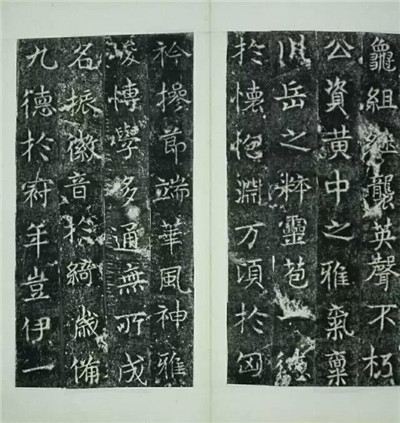 龜組繼襲英聲不朽
公資黃中之雅氣稟
川岳之粹靈苞一德
於懷抱淵万頃於匈
衿操節端華風神雅
峻博學多通無所成
名振徽音於綺歲備
九德於冠年豈伊一